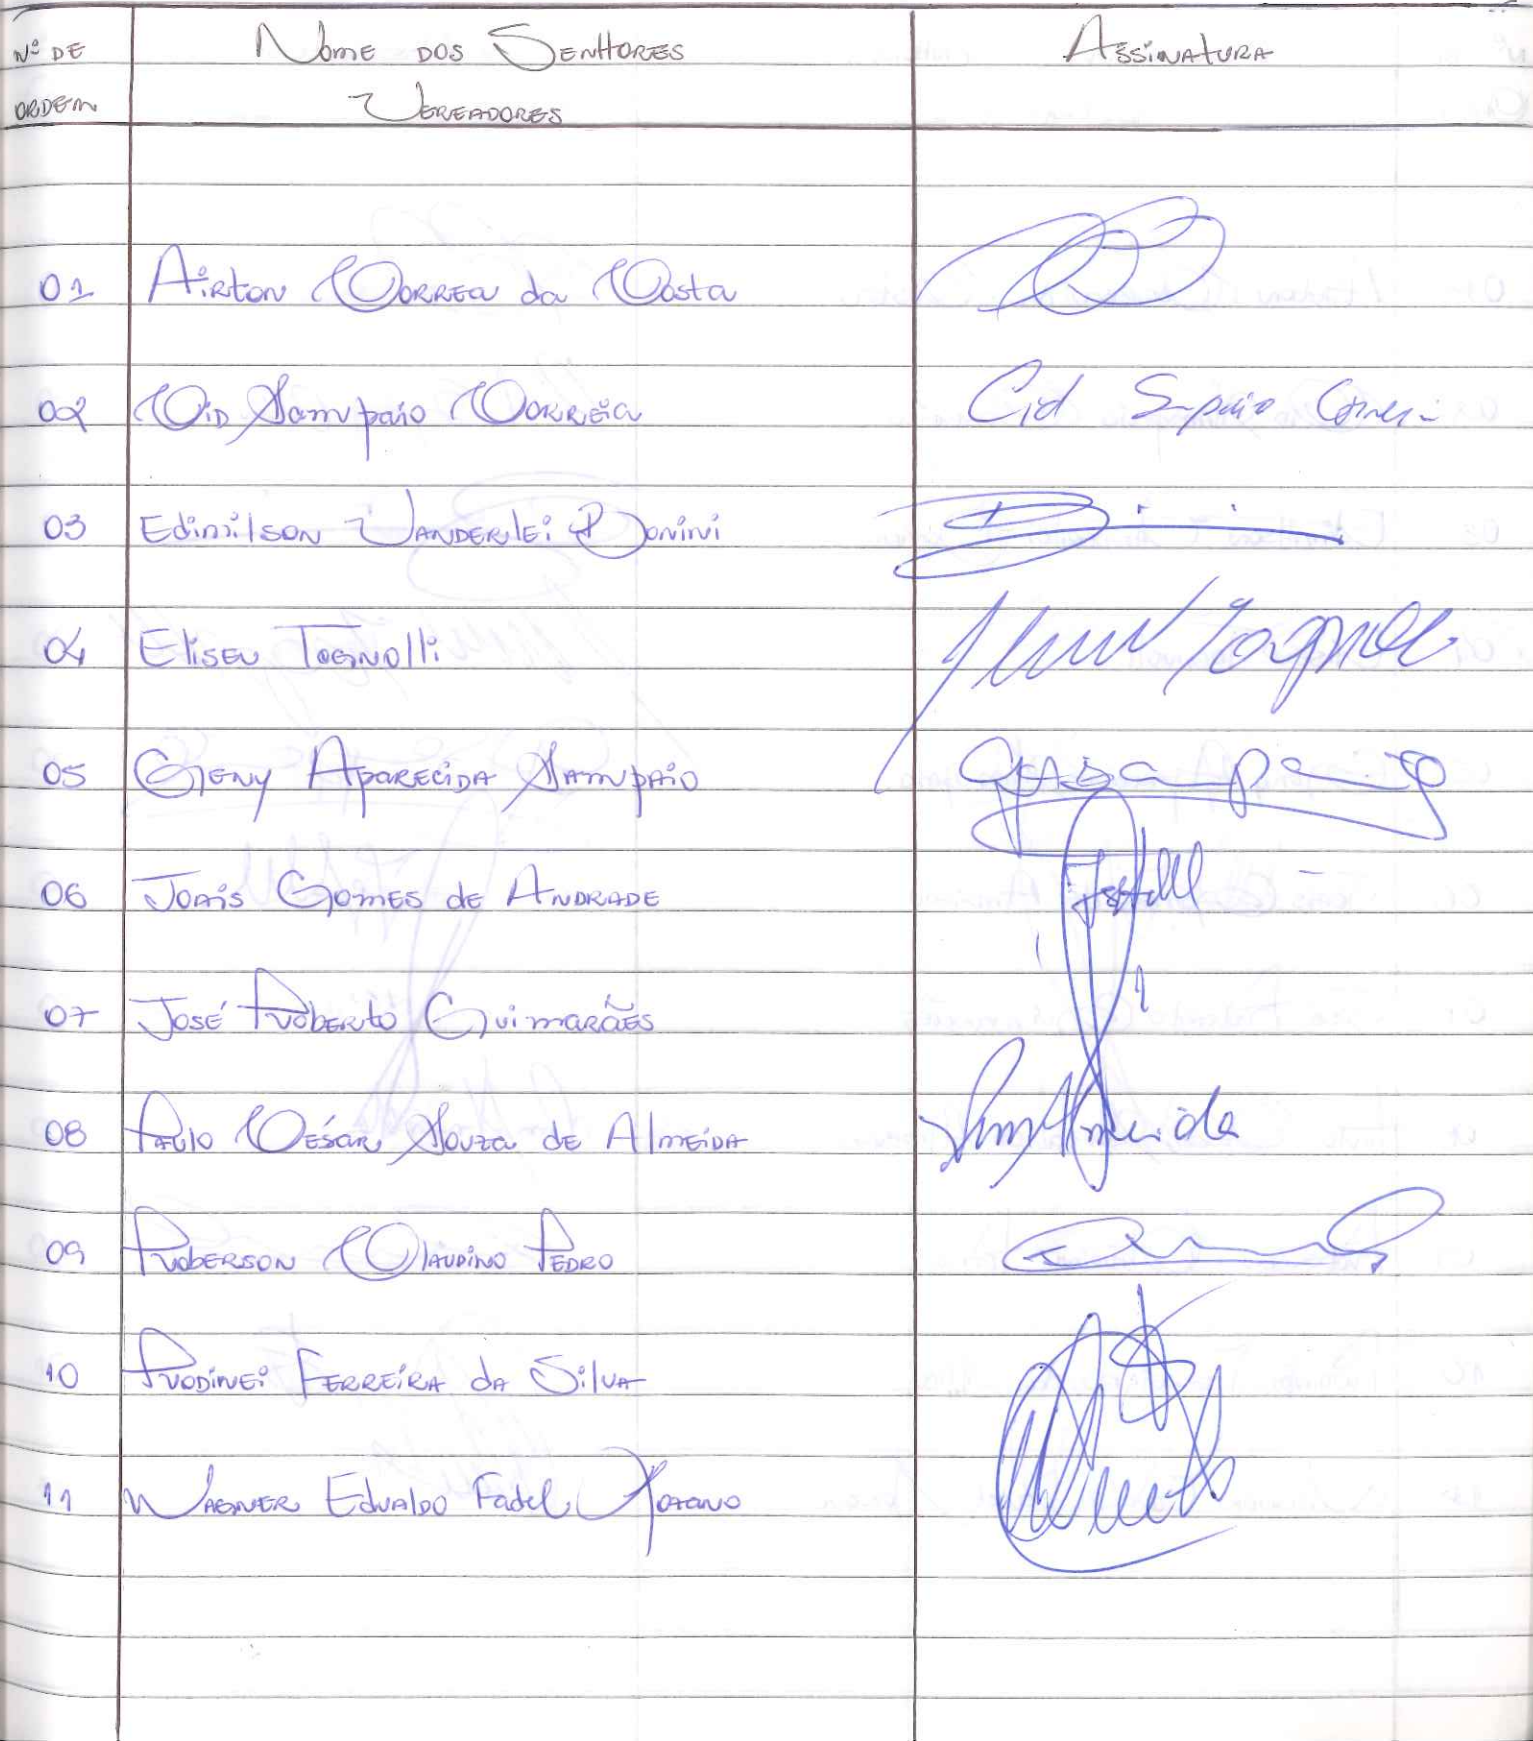 Nº DE
ORDEM
Nome dos Senhores
Vereadores
Assinatura
01 Airton Correa da Costa
02 Cid Sampaio Correia Cid Sampaio Correia
03 Edimilson Vanderlei Bonini
04 Eliseu Tognolli
05 Geny Aparecida Sampaio
06 Jonis Gomes de Andrade
07 José Roberto Guimarães
08 Paulo César Souza de Almeida
09 Roberson Claudino Pedro
10 Rodinei Ferreira da Silva
11 Wagner Edualdo Fadel